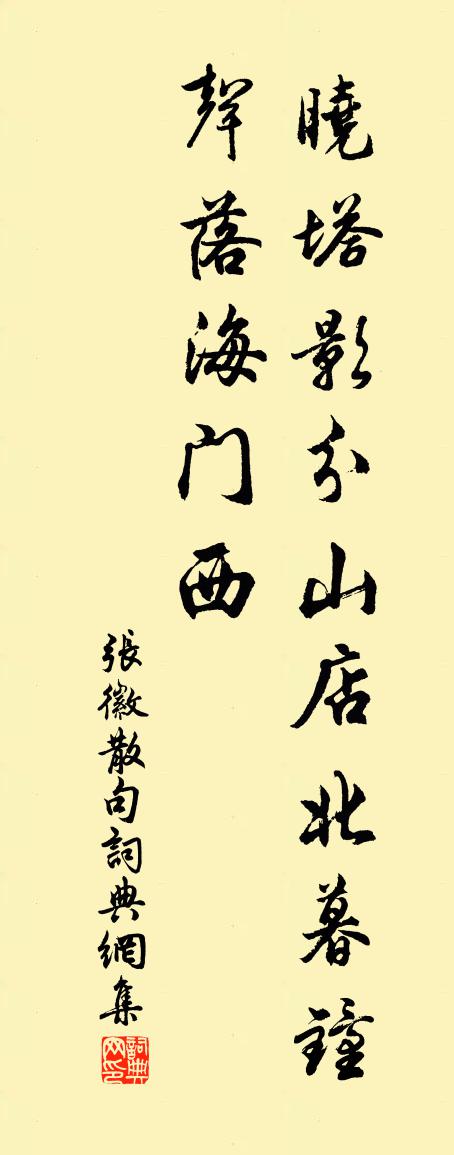 曉塔影分山店北暮鐘
聲落海门西
張徽散句詞典網集
詞典网印